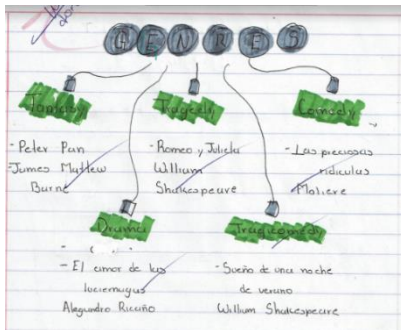 GENRES
Fantasy
Tragedy
Comedy
- Peter Pan
- James Mattew
Barrie
- Romeo y Julieta
William
Shakespeare
- Las preciosas
ridiculas
Moliere
Drama
- El amor de las
luciernagas
Alegandro Ricaño
Tragicomedy
- Sueño de una noche
de verano
William Shakespeare